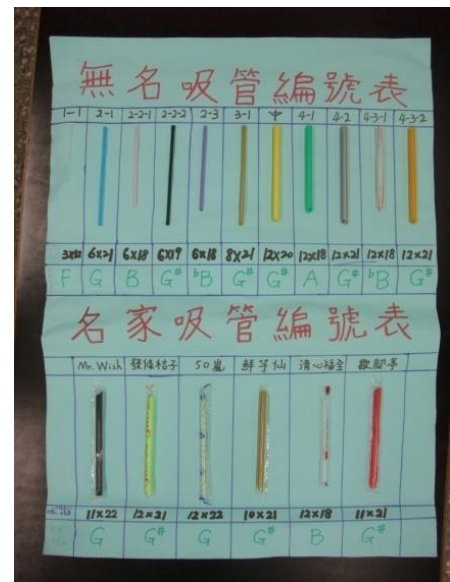 無名吸管編號表
1-1 2-1 2-2-1 2-2-2 2-3 3-1 中 4-1 4-2 4-3-1 4-3-2
6x21 6x18 6x19 6x18 8x21 12x20 12x18 12x21 12x18 12x21
F G B G# bB G# G# A G# bB G#
名家吸管編號表
Mr. Wish 發條桔子 50嵐 鮮芋仙 清心福全 歇腳亭
11x22 12x21 12x22 10x21 12x18 11x21
G G# G G# B G#